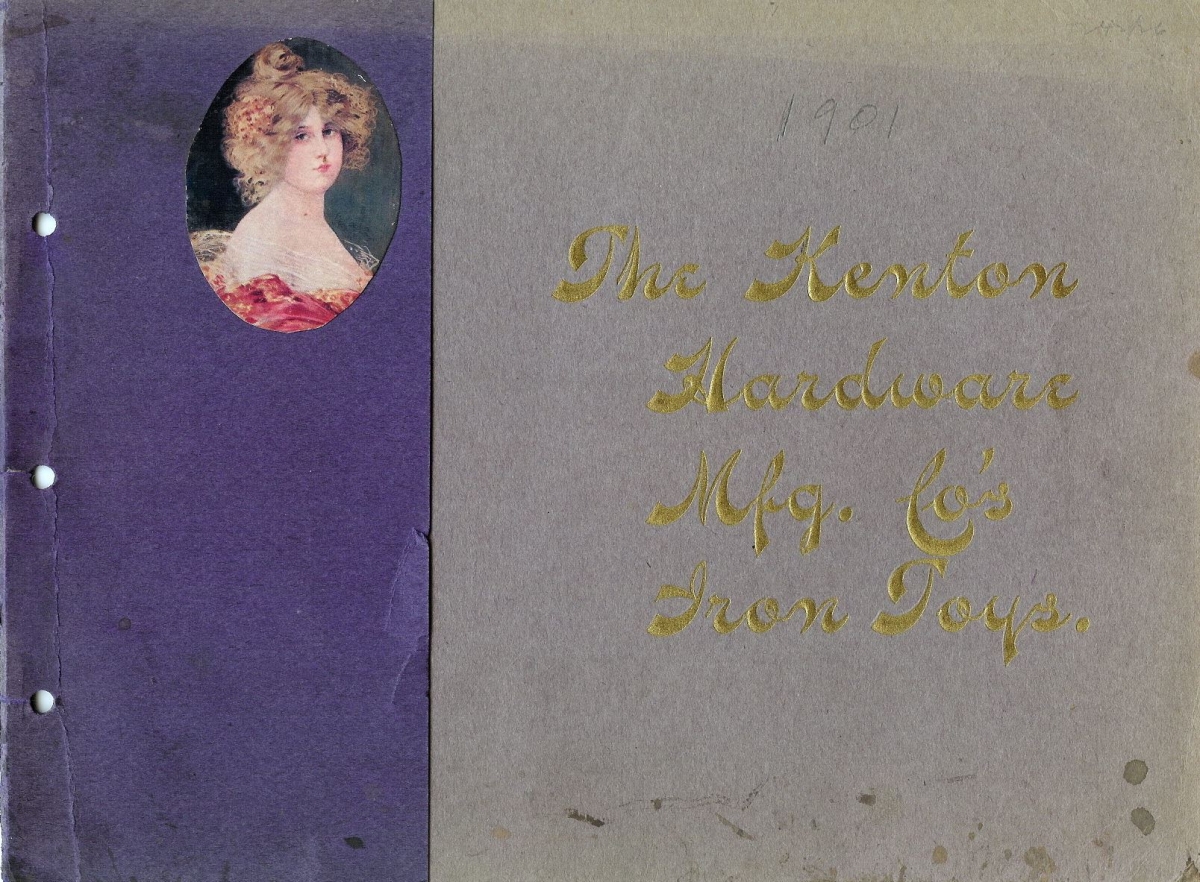 1901
The Kenton
Hardware
Mfg. Co's
Iron Toys.